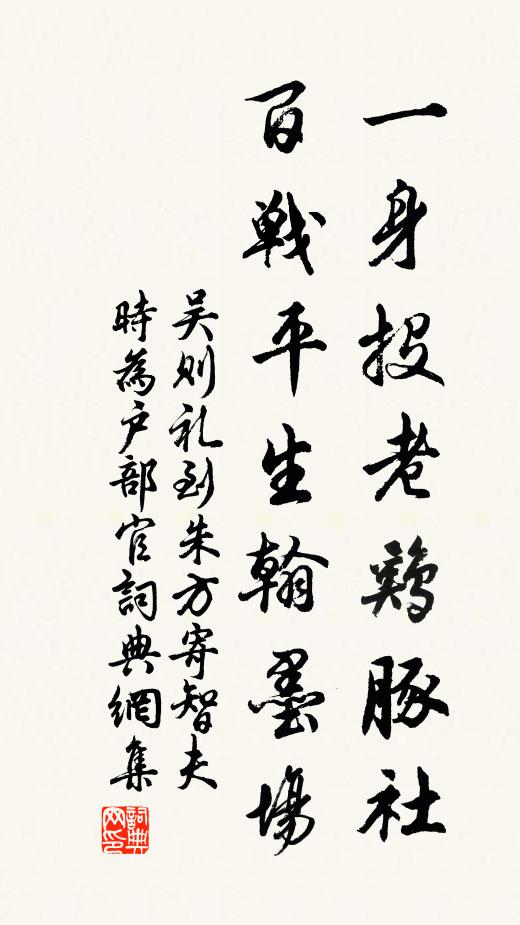 一身投老鷄豚社
百戰平生翰墨場
吴则礼到朱方寄智夫
時為户部官詞典網集
詞典网印